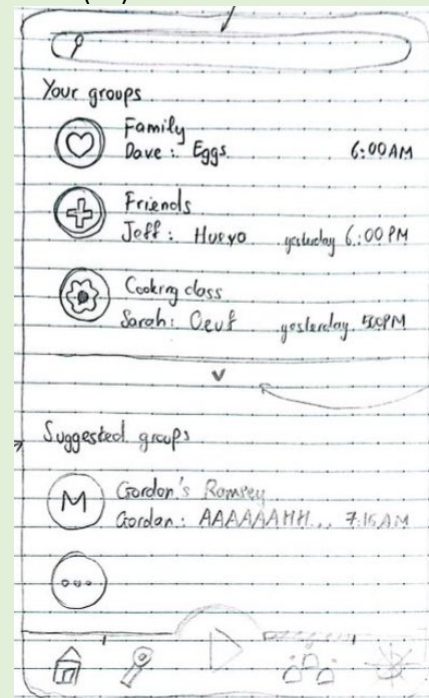 Your groups
Family
Dave: Eggs 6:00AM
Friends
Joff: Huevo yesterday 6:00 PM
Cooking class
Sarah: Oeuf yesterday 5:00PM
Suggested groups
M
Gordon's Ramsey
Gordan: AAAAAAHH... 7:15AM